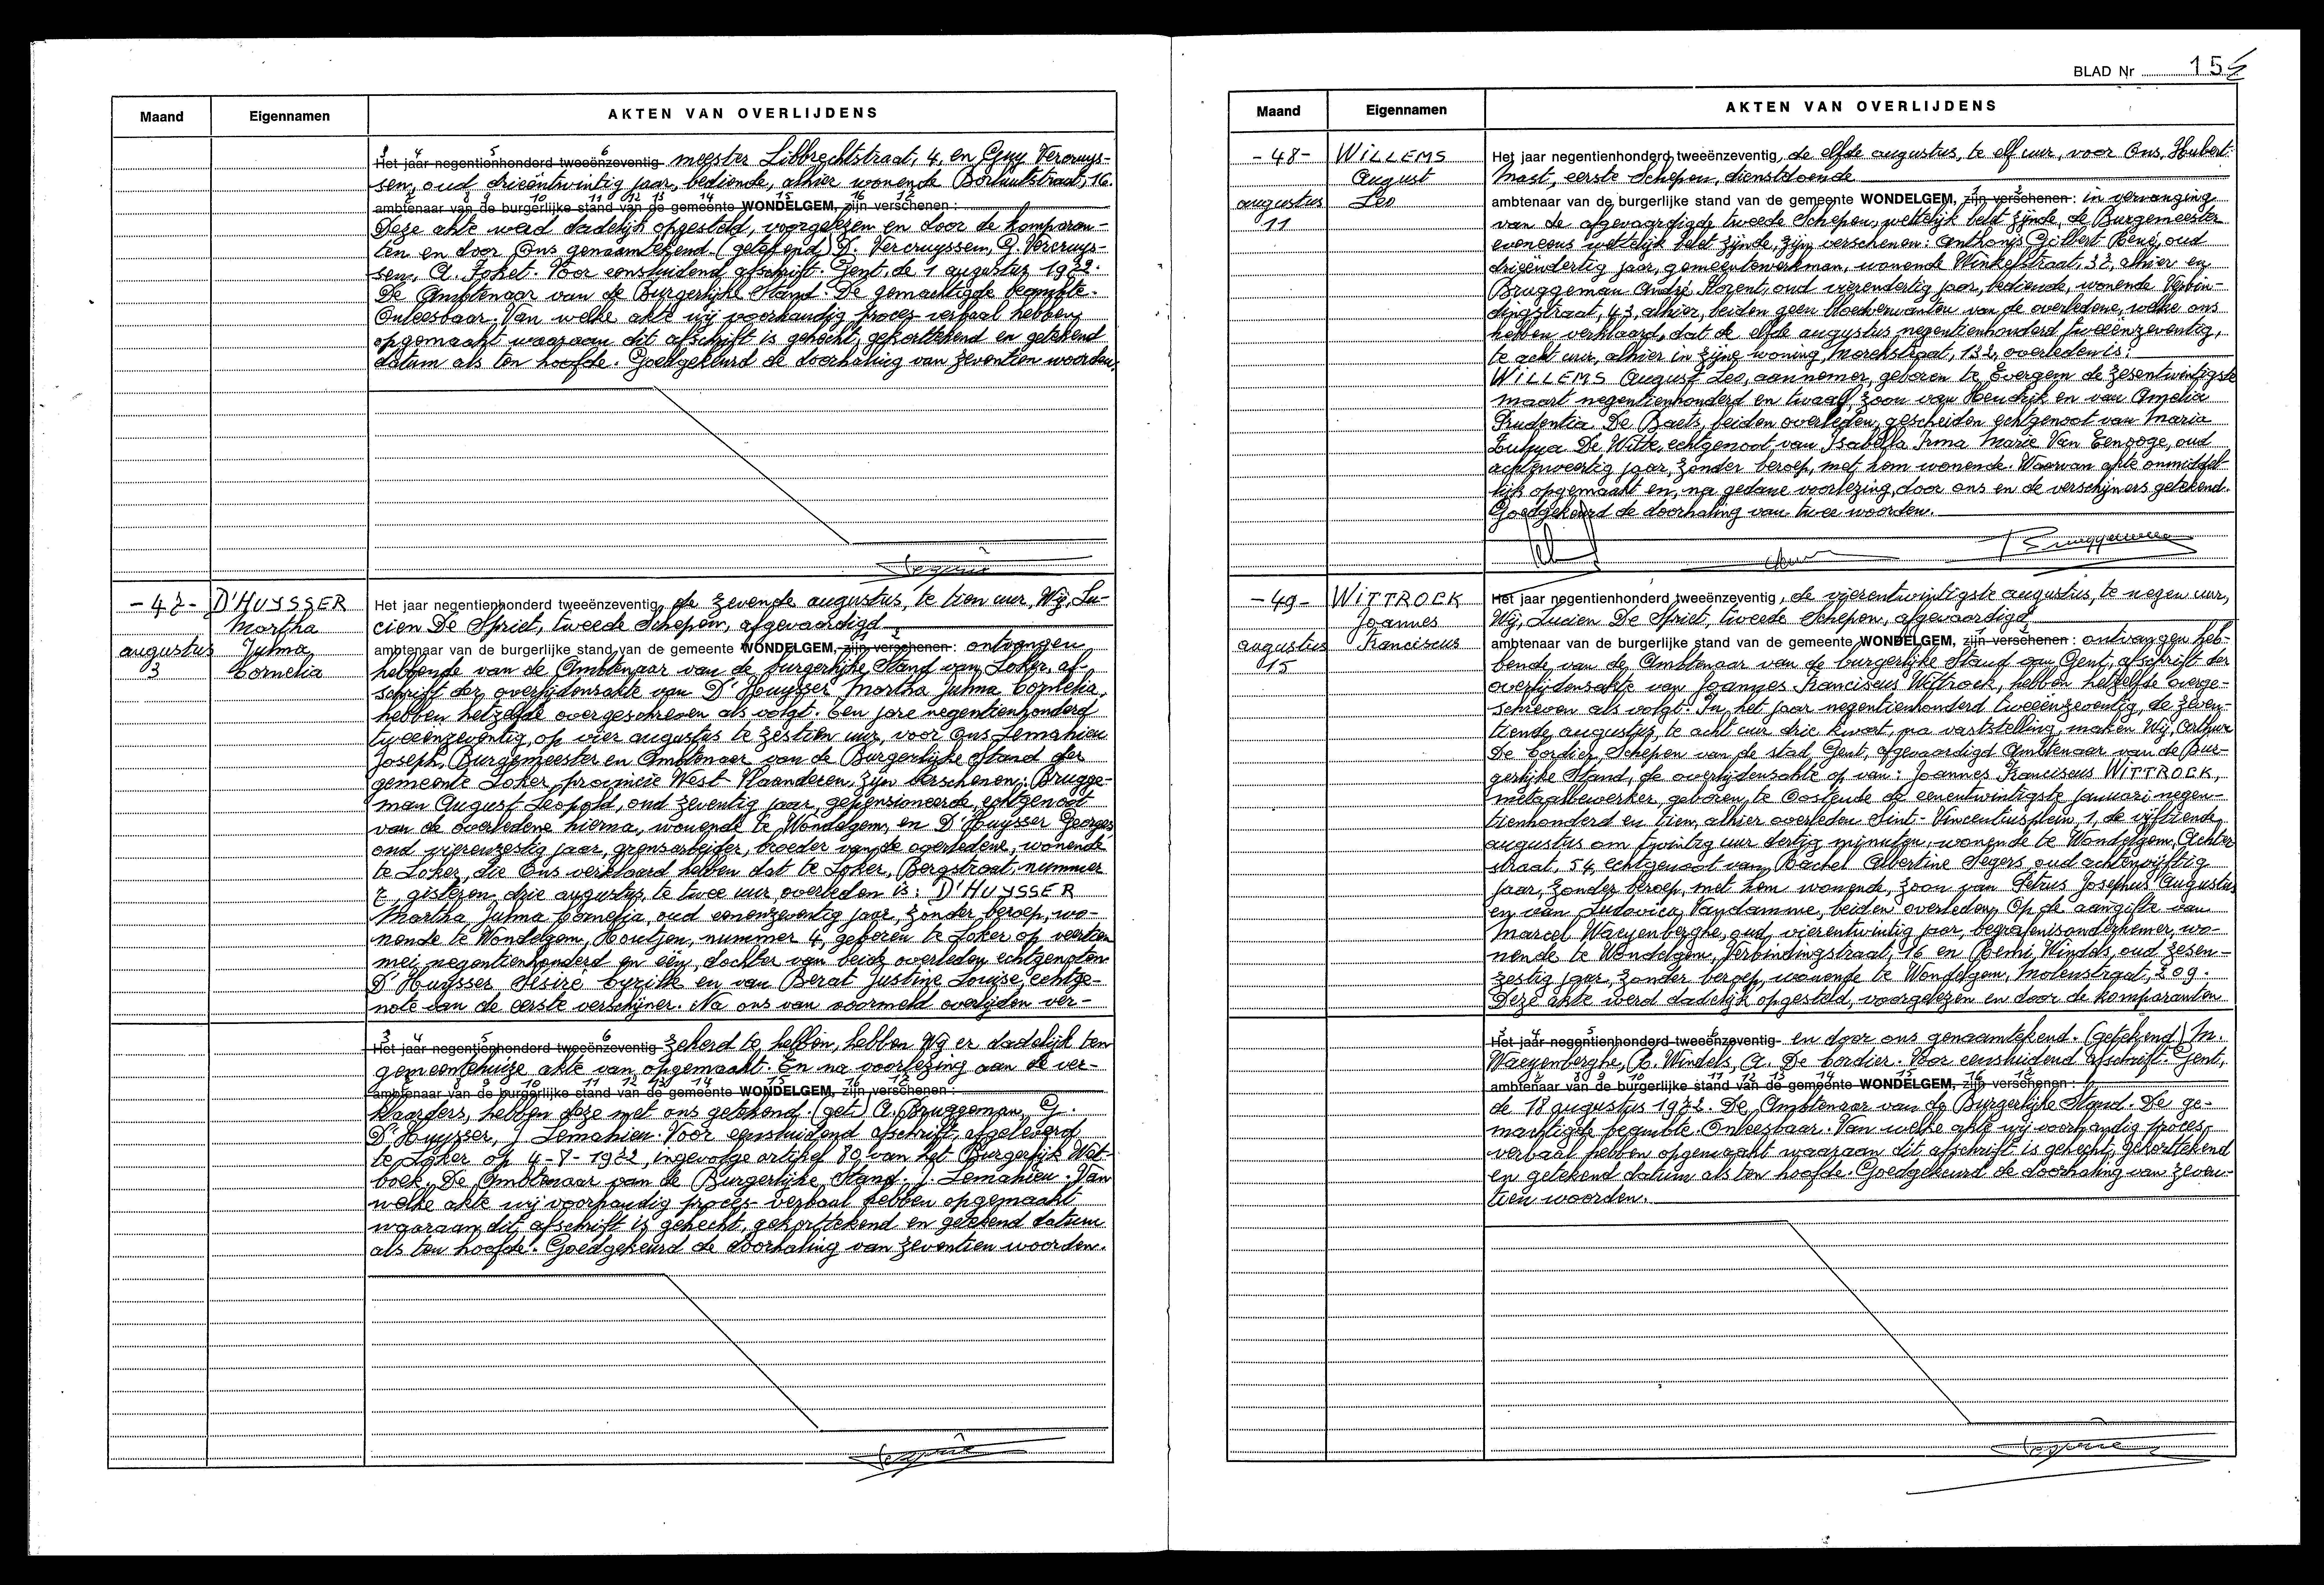 Maand Eigennamen AKTEN VAN OVERLIJDENS
Het jaar negentienhonderd tweeënzeventig meester Libbrechtstraat, 4, en Guy Vercruys-
sen, oud drieëntwintig jaar, bediende, alhier wonende Borluutstraat, 16.
ambtenaar van de burgerlijke stand van de gemeente WONDELGEM, zijn verschenen :
Deze akte werd dadelijk opgesteld, voorgelezen en door de komparan-
ten en door Ons genaamtekend. (getekend) D. Vercruyssen, G. Vercruys-
sen, A. Foket. Voor eensluidend afschrift. Gent, de 1 augustus 1972.
De Ambtenaar van de Burgerlijke Stand. De gemachtigde beambte.
Onleesbaar. Van welke akte wij voorhandig proces verbaal hebben
opgemaakt waaraan dit afschrift is gehecht, gekorttekend en getekend
datum als ten hoofde. Goedgekeurd de doorhaling van zeventien woorden.
-47- D'HUYSSER Martha Julma Cornelia
augustus 3
Het jaar negentienhonderd tweeënzeventig, de zevende augustus, te tien uur, Wij, Lu-
cien De Spriet, tweede Schepen, afgevaardigd
ambtenaar van de burgerlijke stand van de gemeente WONDELGEM, zijn verschenen : ontvangen
hebbende van de Ambtenaar van de burgerlijke Stand van Loker, af-
schrift der overlijdensakte van D'Huysser Martha Julma Cornelia,
hebben hetzelfde overgeschreven als volgt. Ten jare negentienhonderd
tweeënzeventig, op vier augustus te zestien uur, voor Ons Lemahieu
Joseph, Burgemeester en Ambtenaar van de Burgerlijke Stand der
gemeente Loker, provincie West-Vlaanderen, zijn verschenen: Brugge-
man August Leopold, oud zeventig jaar, gepensioneerde, echtgenoot
van de overledene hierna, wonende te Wondelgem, en D'Huysser Georges
oud vierenzestig jaar, grensarbeider, broeder van de overledene, wonende
te Loker, die Ons verklaard hebben dat te Loker, Bergstraat, nummer
7, gisteren drie augustus, te twee uur overleden is: D'HUYSSER
Martha Julma Cornelia, oud eenenzeventig jaar, zonder beroep, wo-
nende te Wondelgem, Houtjen, nummer 4, geboren te Loker op veertien
mei negentienhonderd en één, dochter van beide overleden echtgenoten
D'Huysser Désiré Cyrille en van Berat Justine Louise, echtge-
note van de eerste verschijner. Na ons van voormeld overlijden ver-
Het jaar negentienhonderd tweeënzeventig zekerd te hebben, hebben Wij er dadelijk ten
gemeentehuize akte van opgemaakt. En na voorlezing aan de ver-
ambtenaar van de burgerlijke stand van de gemeente WONDELGEM, zijn verschenen :
klaarders, hebben deze met ons getekend. (get.) A. Bruggeman, G.
D'Huysser, J. Lemahieu. Voor eensluidend afschrift, afgeleverd
te Loker op 4-8-1972, ingevolge artikel 80 van het Burgerlijk Wet-
boek. De Ambtenaar van de Burgerlijke Stand. J. Lemahieu. Van
welke akte wij voorhandig proces-verbaal hebben opgemaakt
waaraan dit afschrift is gehecht, gekorttekend en getekend datum
als ten hoofde. Goedgekeurd de doorhaling van zeventien woorden.
BLAD Nr 15
Maand Eigennamen AKTEN VAN OVERLIJDENS
-48- WILLEMS August Leo
augustus 11
Het jaar negentienhonderd tweeënzeventig, de elfde augustus, te elf uur, voor Ons, Hubert
Mast, eerste Schepen, dienstdoende
ambtenaar van de burgerlijke stand van de gemeente WONDELGEM, zijn verschenen : in vervanging
van de afgevaardigde tweede Schepen, wettelijk belet zijnde, de Burgemeester
eveneens wettelijk belet zijnde, zijn verschenen: Anthonys Gilbert René, oud
drieëndertig jaar, gemeentewerkman, wonende Winkelstraat, 32, alhier en
Bruggeman André Florent, oud vierendertig jaar, bediende, wonende Verbin-
dingstraat, 43, alhier, beiden geen bloedverwanten van de overledene, welke ons
hebben verklaard, dat de elfde augustus negentienhonderd tweeënzeventig,
te acht uur, alhier in zijne woning, Morekstraat, 132, overleden is:
WILLEMS August Leo, aannemer, geboren te Evergem de zesentwintigste
maart negentienhonderd en twaalf, zoon van Hendrik en van Amelia
Prudentia De Baets, beiden overleden, gescheiden echtgenoot van Maria
Zulma De Witte, echtgenoot van Isabella Irma Marie Van Eenooge, oud
achtenveertig jaar, zonder beroep, met hem wonende. Waarvan akte onmiddel-
lijk opgemaakt en, na gedane voorlezing, door ons en de verschijners getekend.
Goedgekeurd de doorhaling van twee woorden.
Bruggeman
-49- WITTROCK Joannes Franciscus
augustus 15
Het jaar negentienhonderd tweeënzeventig, de vierentwintigste augustus, te negen uur,
Wij, Lucien De Spriet, tweede Schepen, afgevaardigd
ambtenaar van de burgerlijke stand van de gemeente WONDELGEM, zijn verschenen : ontvangen heb-
bende van de Ambtenaar van de burgerlijke Stand van Gent, afschrift der
overlijdensakte van Joannes Franciscus Wittrock, hebben hetzelfde overge-
schreven als volgt: In het jaar negentienhonderd tweeënzeventig, de zeven-
tiende augustus, te acht uur drie kwart, na vaststelling, maken Wij, Arthur
De Cordier, Schepen van de stad Gent, afgevaardigd Ambtenaar van de Bur-
gerlijke Stand, de overlijdensakte op van: Joannes Franciscus WITTROCK,
metaalbewerker, geboren te Oostende de eenentwintigste januari negen-
tienhonderd en tien, alhier overleden Sint-Vincentiusplein, 1, de vijftiende
augustus om twintig uur dertig minuten, wonende te Wondelgem, Achter-
straat, 54, echtgenoot van Rachel Albertine Segers, oud achtenvijftig
jaar, zonder beroep, met hem wonende, zoon van Petrus Josephus Augustus
en van Ludovica Vandamme, beiden overleden. Op de aangifte van
Marcel Waeyenberghe, oud vierentwintig jaar, begrafenisondernemer, wo-
nende te Wondelgem, Verbindingstraat, 16 en Remi Windels, oud zesen-
zestig jaar, zonder beroep, wonende te Wondelgem, Molenstraat, 209.
Deze akte werd dadelijk opgesteld, voorgelezen en door de komparanten
Het jaar negentienhonderd tweeënzeventig en door ons genaamtekend. (getekend) M.
Waeyenberghe, R. Windels, A. De Cordier. Voor eensluidend afschrift. Gent,
ambtenaar van de burgerlijke stand van de gemeente WONDELGEM, zijn verschenen :
de 18 augustus 1972. De Ambtenaar van de Burgerlijke Stand. De ge-
machtigde beambte. Onleesbaar. Van welke akte wij voorhandig proces-
verbaal hebben opgemaakt waaraan dit afschrift is gehecht, gekorttekend
en getekend datum als ten hoofde. Goedgekeurd de doorhaling van zeven-
tien woorden.